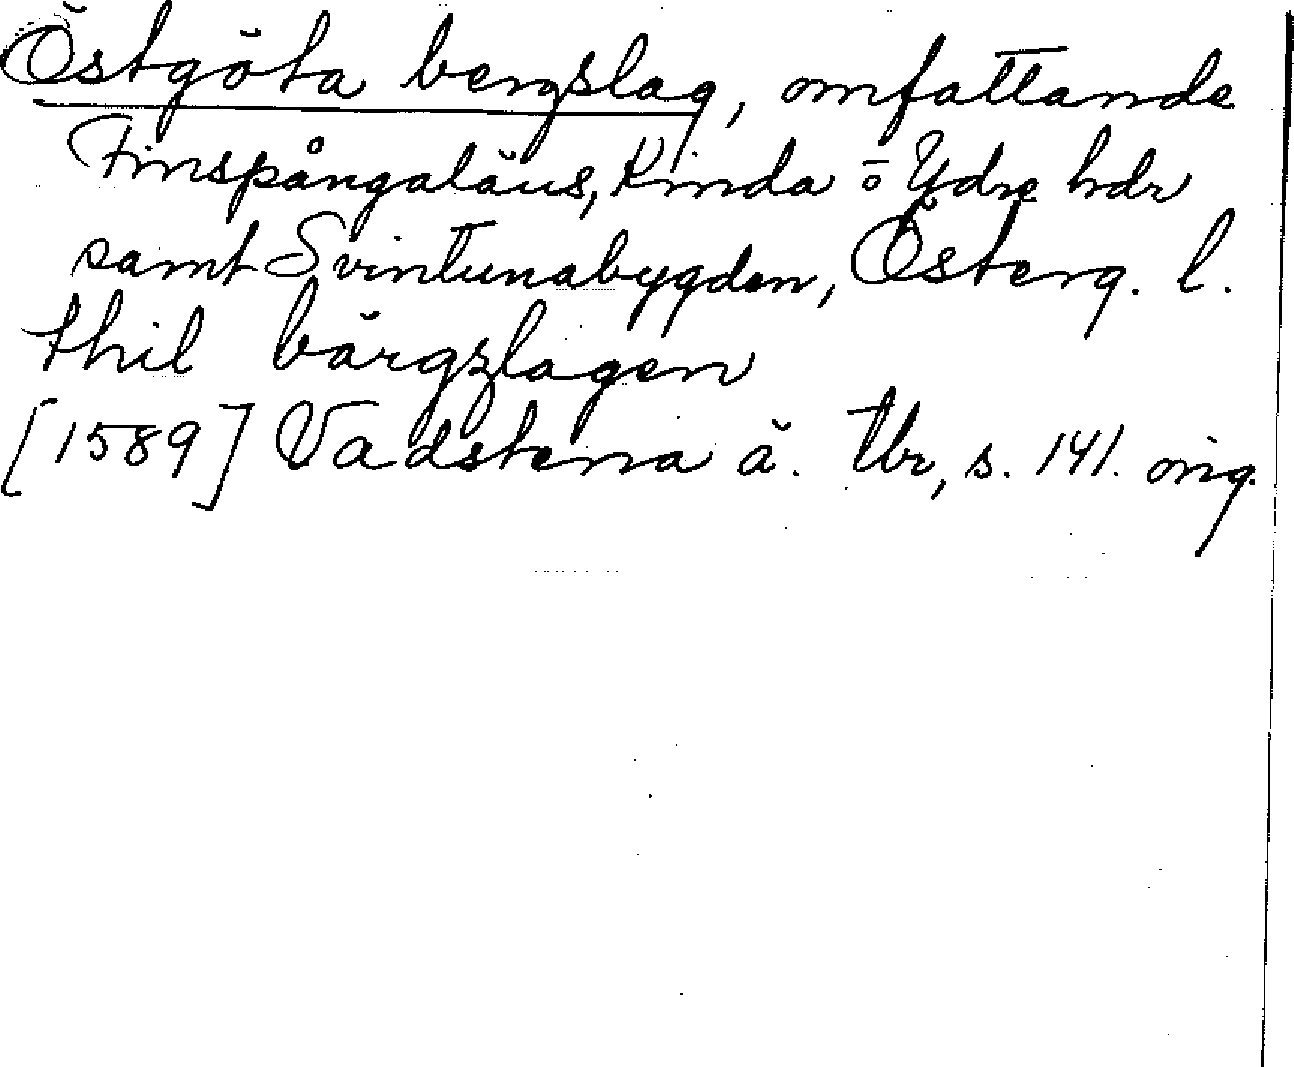 Östgöta bergslag, omfattande
Finspångaläns, Kinda o Ydre hdr
samt Svintunabygden, Österg. l.
thil bärgzlagen
[1589] Vadstena ä. tbr, s. 141. orig.